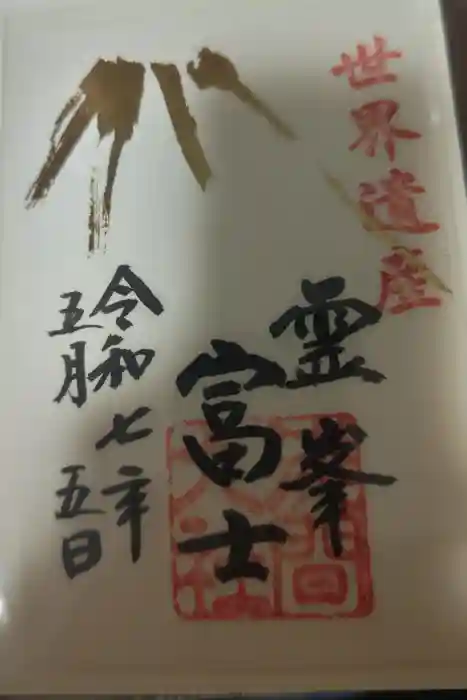 世界遺産
霊峯
富士
令和七年
五月五日